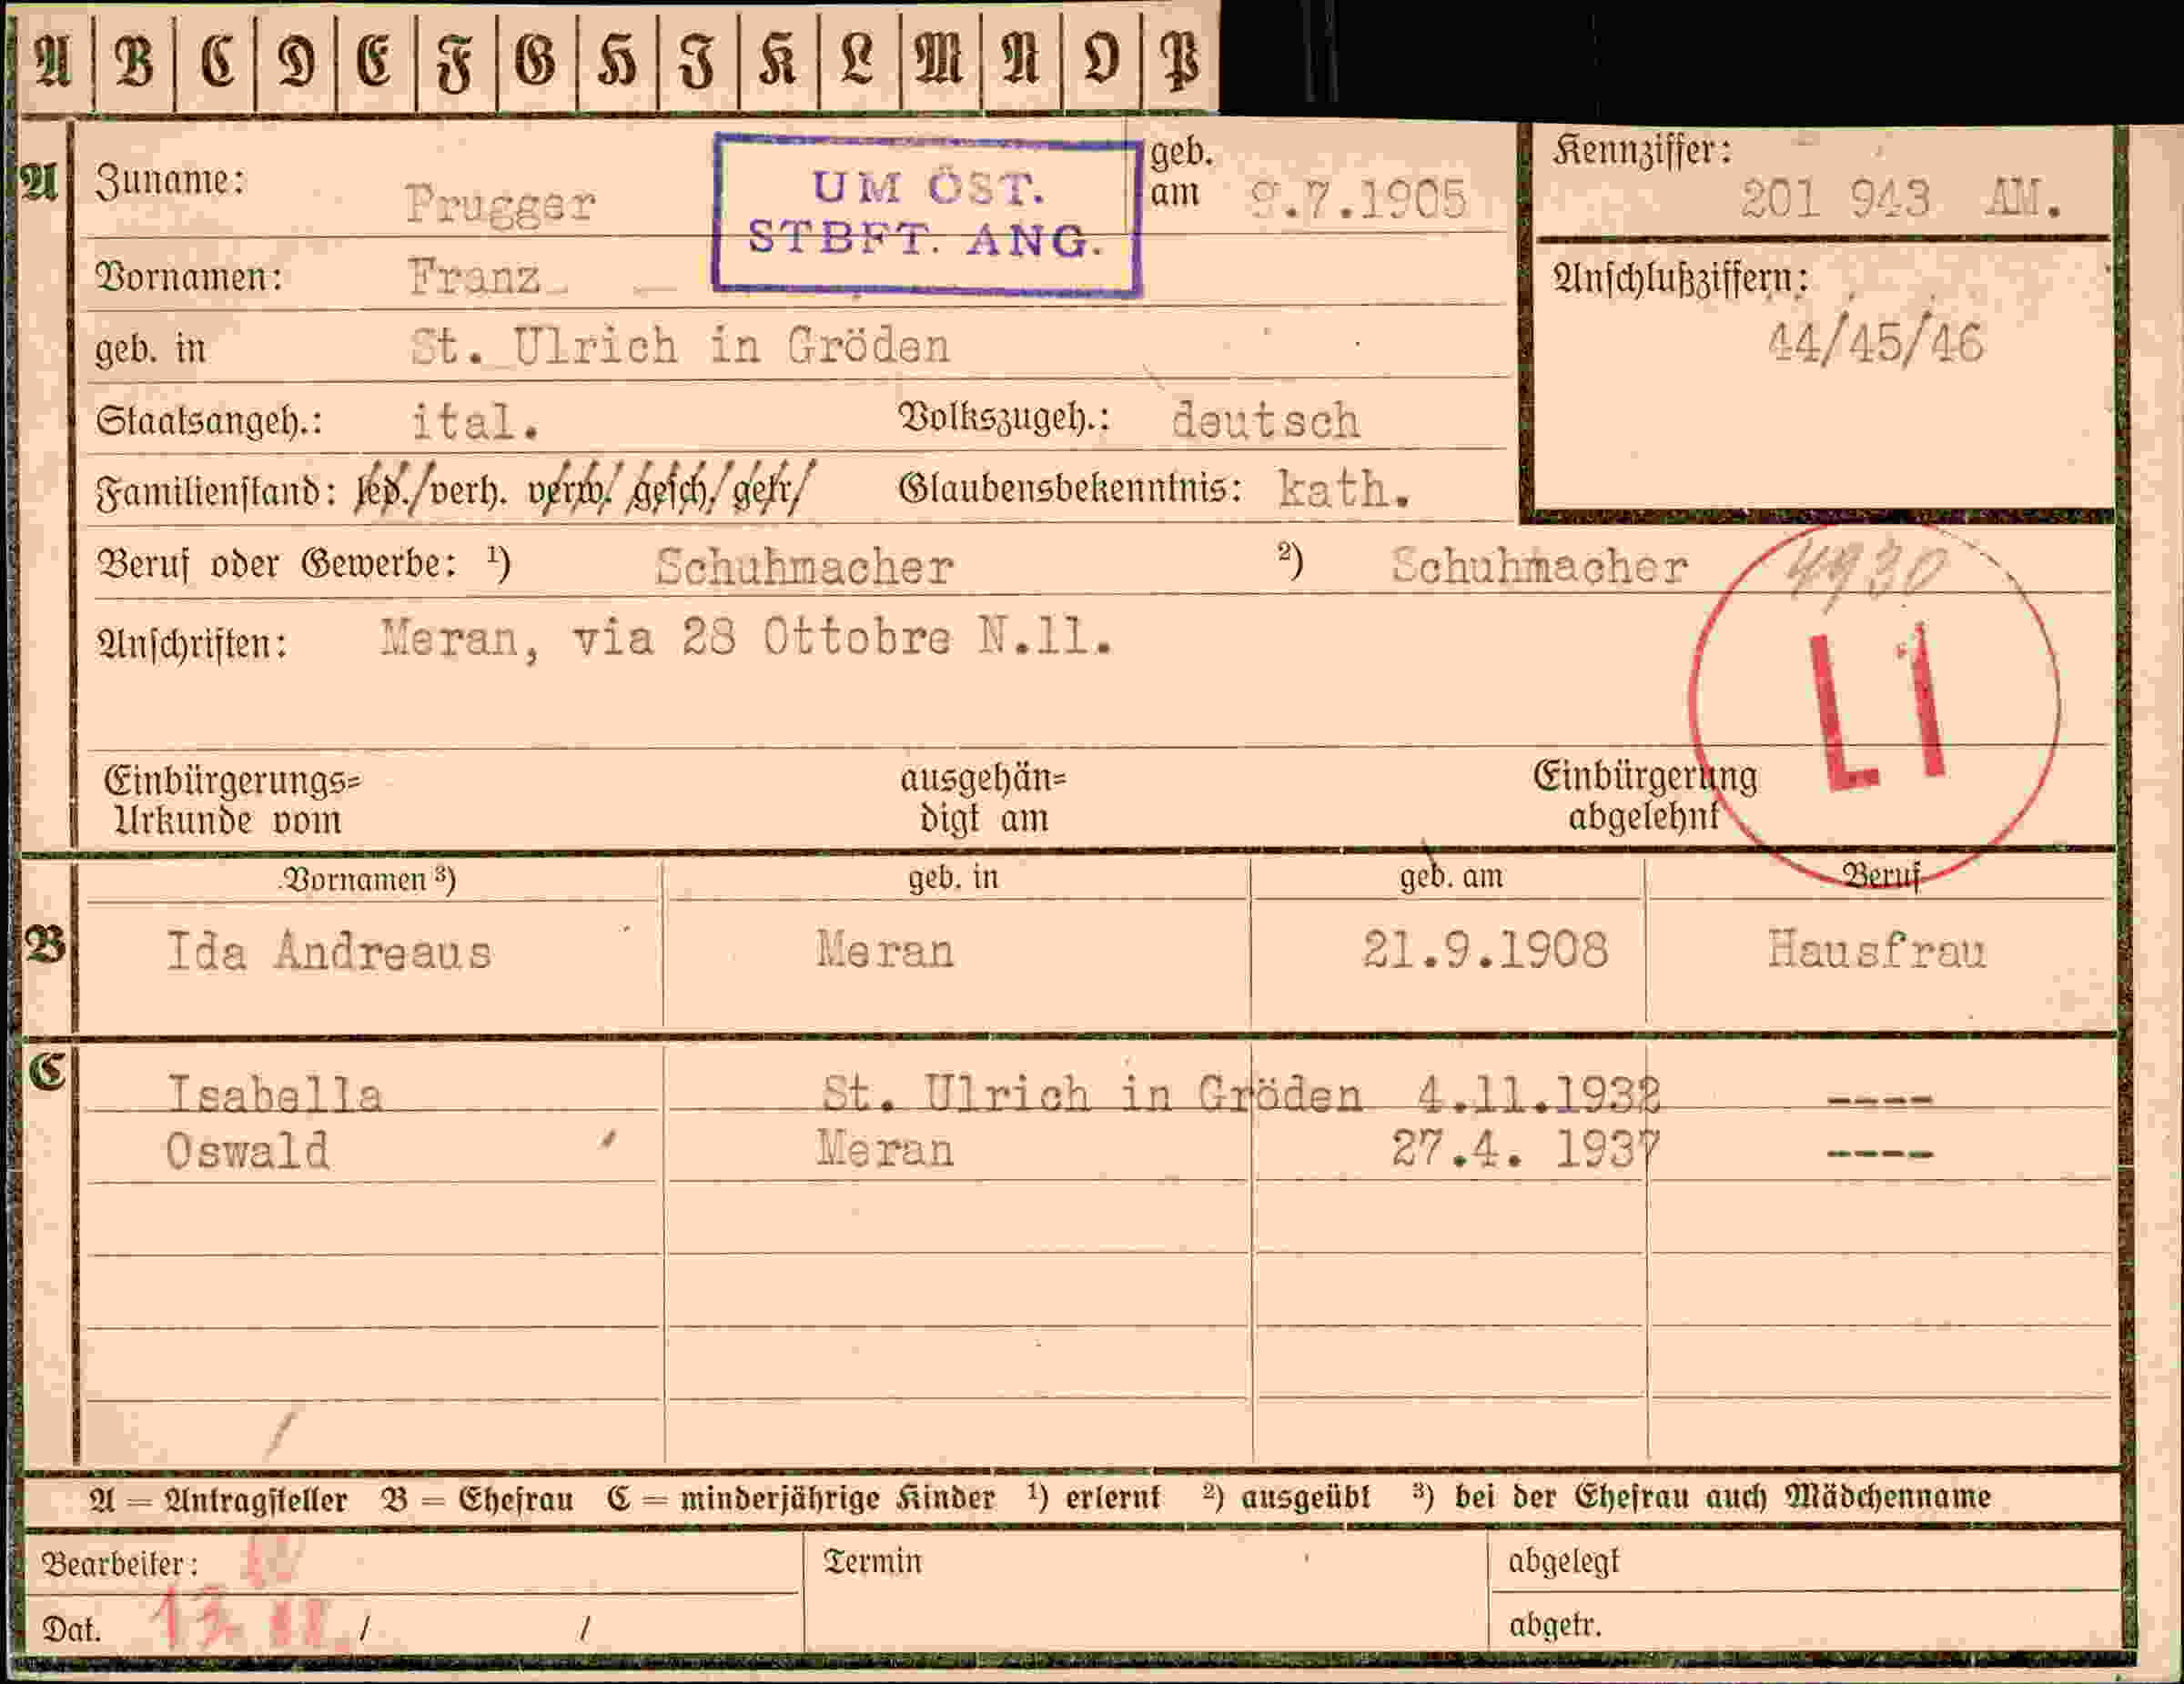 A B C D E F G H I K L M N O P
A
Zuname: Prugger
UM ÖST.
STBFT. ANG.
geb. am 9.7.1905
Kennziffer:
201 943 AM.
Vornamen: Franz
Anschlußziffern:
44/45/46
geb. in St. Ulrich in Gröden
Staatsangeh.: ital. Volkszugeh.: deutsch
Familienstand: led./verh. verw./gesch./getr/ Glaubensbekenntnis: kath.
Beruf oder Gewerbe: ¹) Schuhmacher ²) Schuhmacher
4930
Anschriften: Meran, via 28 Ottobre N.11.
L1
Einbürgerungs= ausgehän= Einbürgerung
Urkunde vom digt am abgelehnt
Vornamen ³) geb. in geb. am Beruf
B Ida Andreaus Meran 21.9.1908 Hausfrau
C Isabella St. Ulrich in Gröden 4.11.1932 ----
Oswald Meran 27.4. 1937 ----
A = Antragsteller B = Ehefrau C = minderjährige Kinder ¹) erlernt ²) ausgeübt ³) bei der Ehefrau auch Mädchenname
Bearbeiter: Termin abgelegt
Dat. / / abgetr.